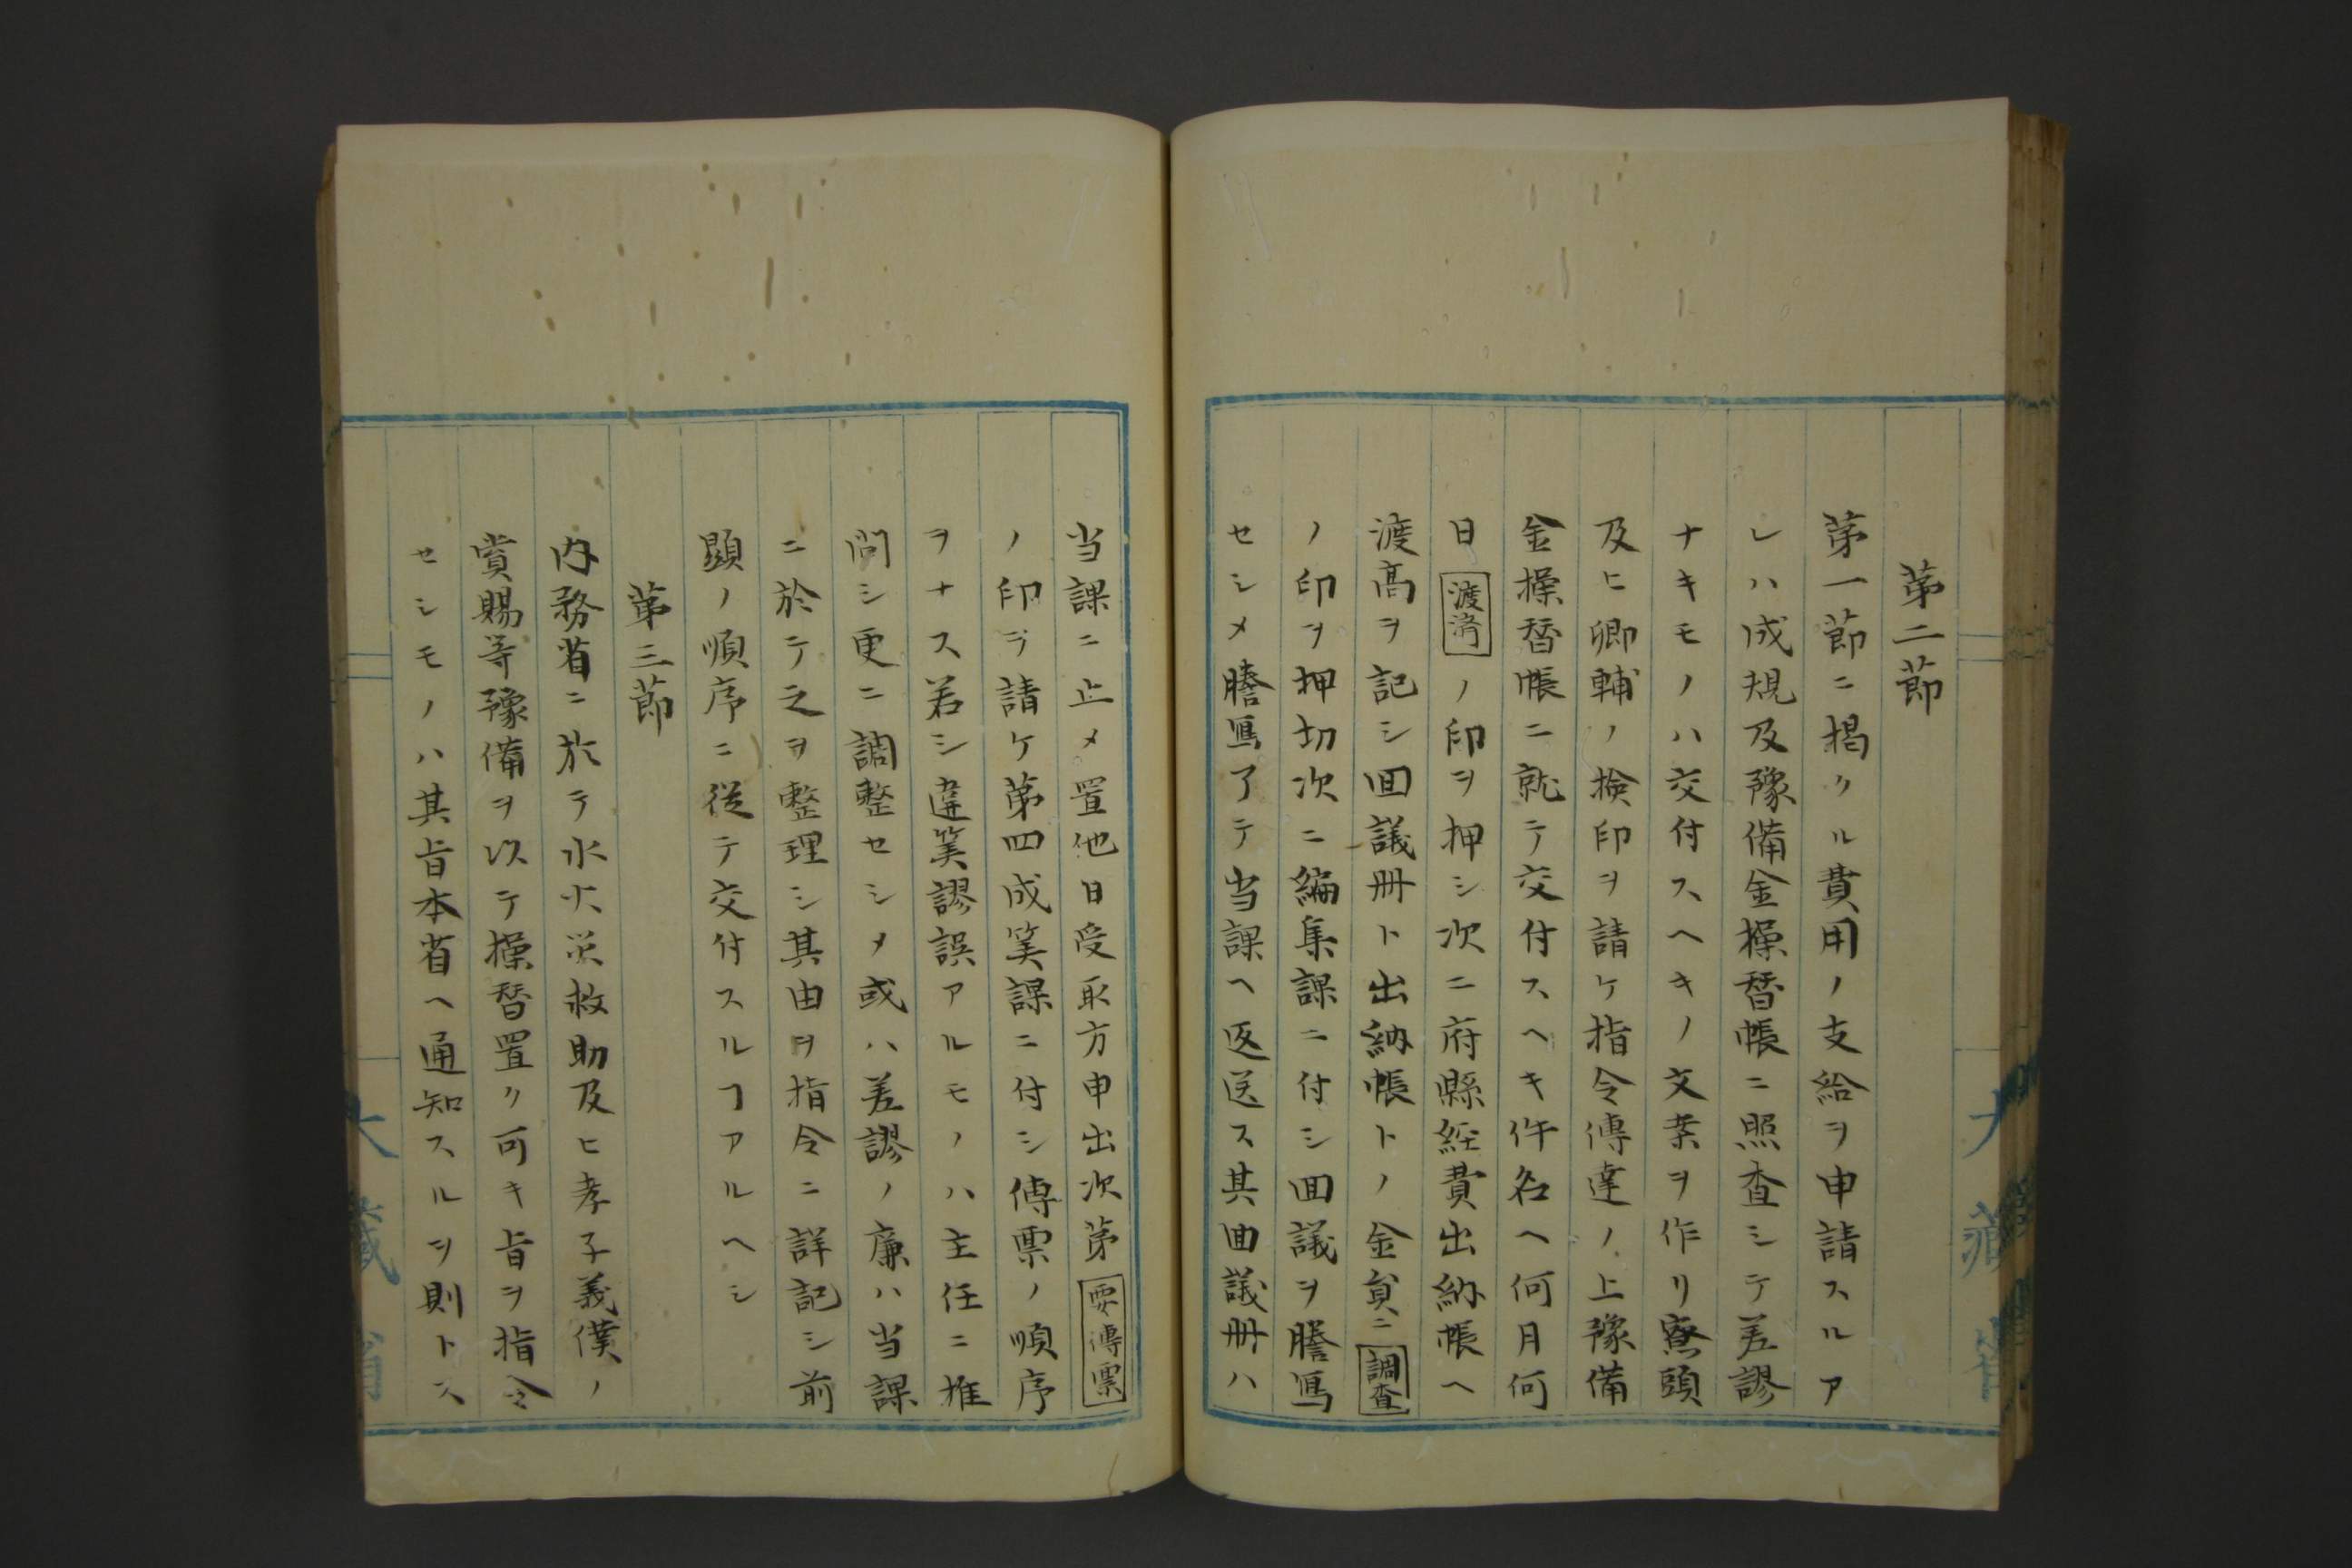 第二節
第一節ニ掲クル費用ノ支給ヲ申請スルア
レハ成規及豫備金操替帳ニ照査シテ差謬
ナキモノハ交付スヘキノ文案ヲ作リ寮頭
及ヒ卿輔ノ検印ヲ請ケ指令傳達ノ上豫備
金操替帳ニ就テ交付スヘキ件名ヘ何月何
日渡済ノ印ヲ押シ次ニ府縣経費出納帳ヘ
渡高ヲ記シ回議冊ト出納帳トノ金貟ニ調査
ノ印ヲ押切次ニ編集課ニ付シ回議ヲ謄寫
セシメ謄寫了テ当課ヘ返送ス其回議冊ハ
当課ニ止メ置他日受取方申出次第要傳票
ノ印ヲ請ケ第四成筭課ニ付シ傳票ノ順序
ヲナス若シ違筭謬誤アルモノハ主任ニ推
問シ更ニ調整セシメ或ハ差謬ノ廉ハ当課
ニ於テ之ヲ整理シ其由ヲ指令ニ詳記シ前
顕ノ順序ニ従テ交付スルヿアルヘシ
第三節
内務省ニ於テ水火災救助及ヒ孝子義僕ノ
賞賜等豫備ヲ以テ操替置ク可キ旨ヲ指令
セシモノハ其旨本省ヘ通知スルヲ則トス
大藏省
大藏省